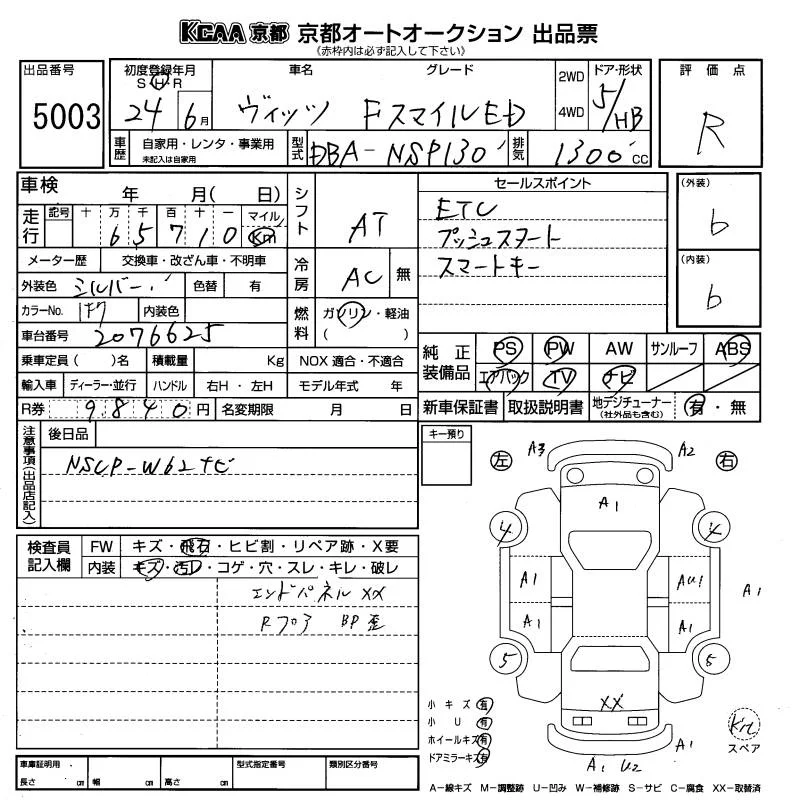 KCAA 京都 京都オートオークション 出品票
(赤枠内は必ず記入して下さい)
出品番号
5003
初度登録年月
S H R
24 6月
車名
グレード
ヴィッツ FスマイルED
2WD
4WD
ドア・形状
5/HB
評価点
R
車歴
自家用・レンタ・事業用
未記入は自家用
型式
DBA-NSP130
排気
1300cc
車検
年 月( 日)
走行
記号 十 万 千 百 十 一 マイル
6 5 7 1 0 Km
シフト
AT
セールスポイント
ETC
プッシュスタート
スマートキー
(外装)
6
(内装)
6
メーター歴 交換車・改ざん車・不明車
外装色 シルバー 色替 有
冷房
AC 無
カラーNo. 1F7 内装色
燃料
ガソリン・軽油
( )
車台番号 2076625
乗車定員( )名 積載量 Kg NOX 適合・不適合
輸入車 ディーラー・並行 ハンドル 右H・左H モデル年式 年
R券 9840円 名変期限 月 日
純正装備品
PS PW AW サンルーフ ABS
エアバック TV ナビ
新車保証書 取扱説明書 地デジチューナー(社外品も含む) 有・無
注意事項(出品店記入)
後日品
NSCP-W62ナビ
キー預り
検査員記入欄
FW キズ・飛石・ヒビ割・リペア跡・X要
内装 キズ・汚れ・コゲ・穴・スレ・キレ・破レ
エンドパネルXX
Rフロア BP歪
左 A3 A2 右
A1
4 4
A1 AU1 A1
A1 A1
5 5
XX
A1 U2 A1
小キズ有
小U有
ホイールキズ有
ドアミラーキズ有
スペア
車庫証明用
長さ cm 幅 cm 高さ cm
型式指定番号
類別区分番号
A-線キズ M-調整跡 U-凹み W-補修跡 S-サビ C-腐食 XX-取替済